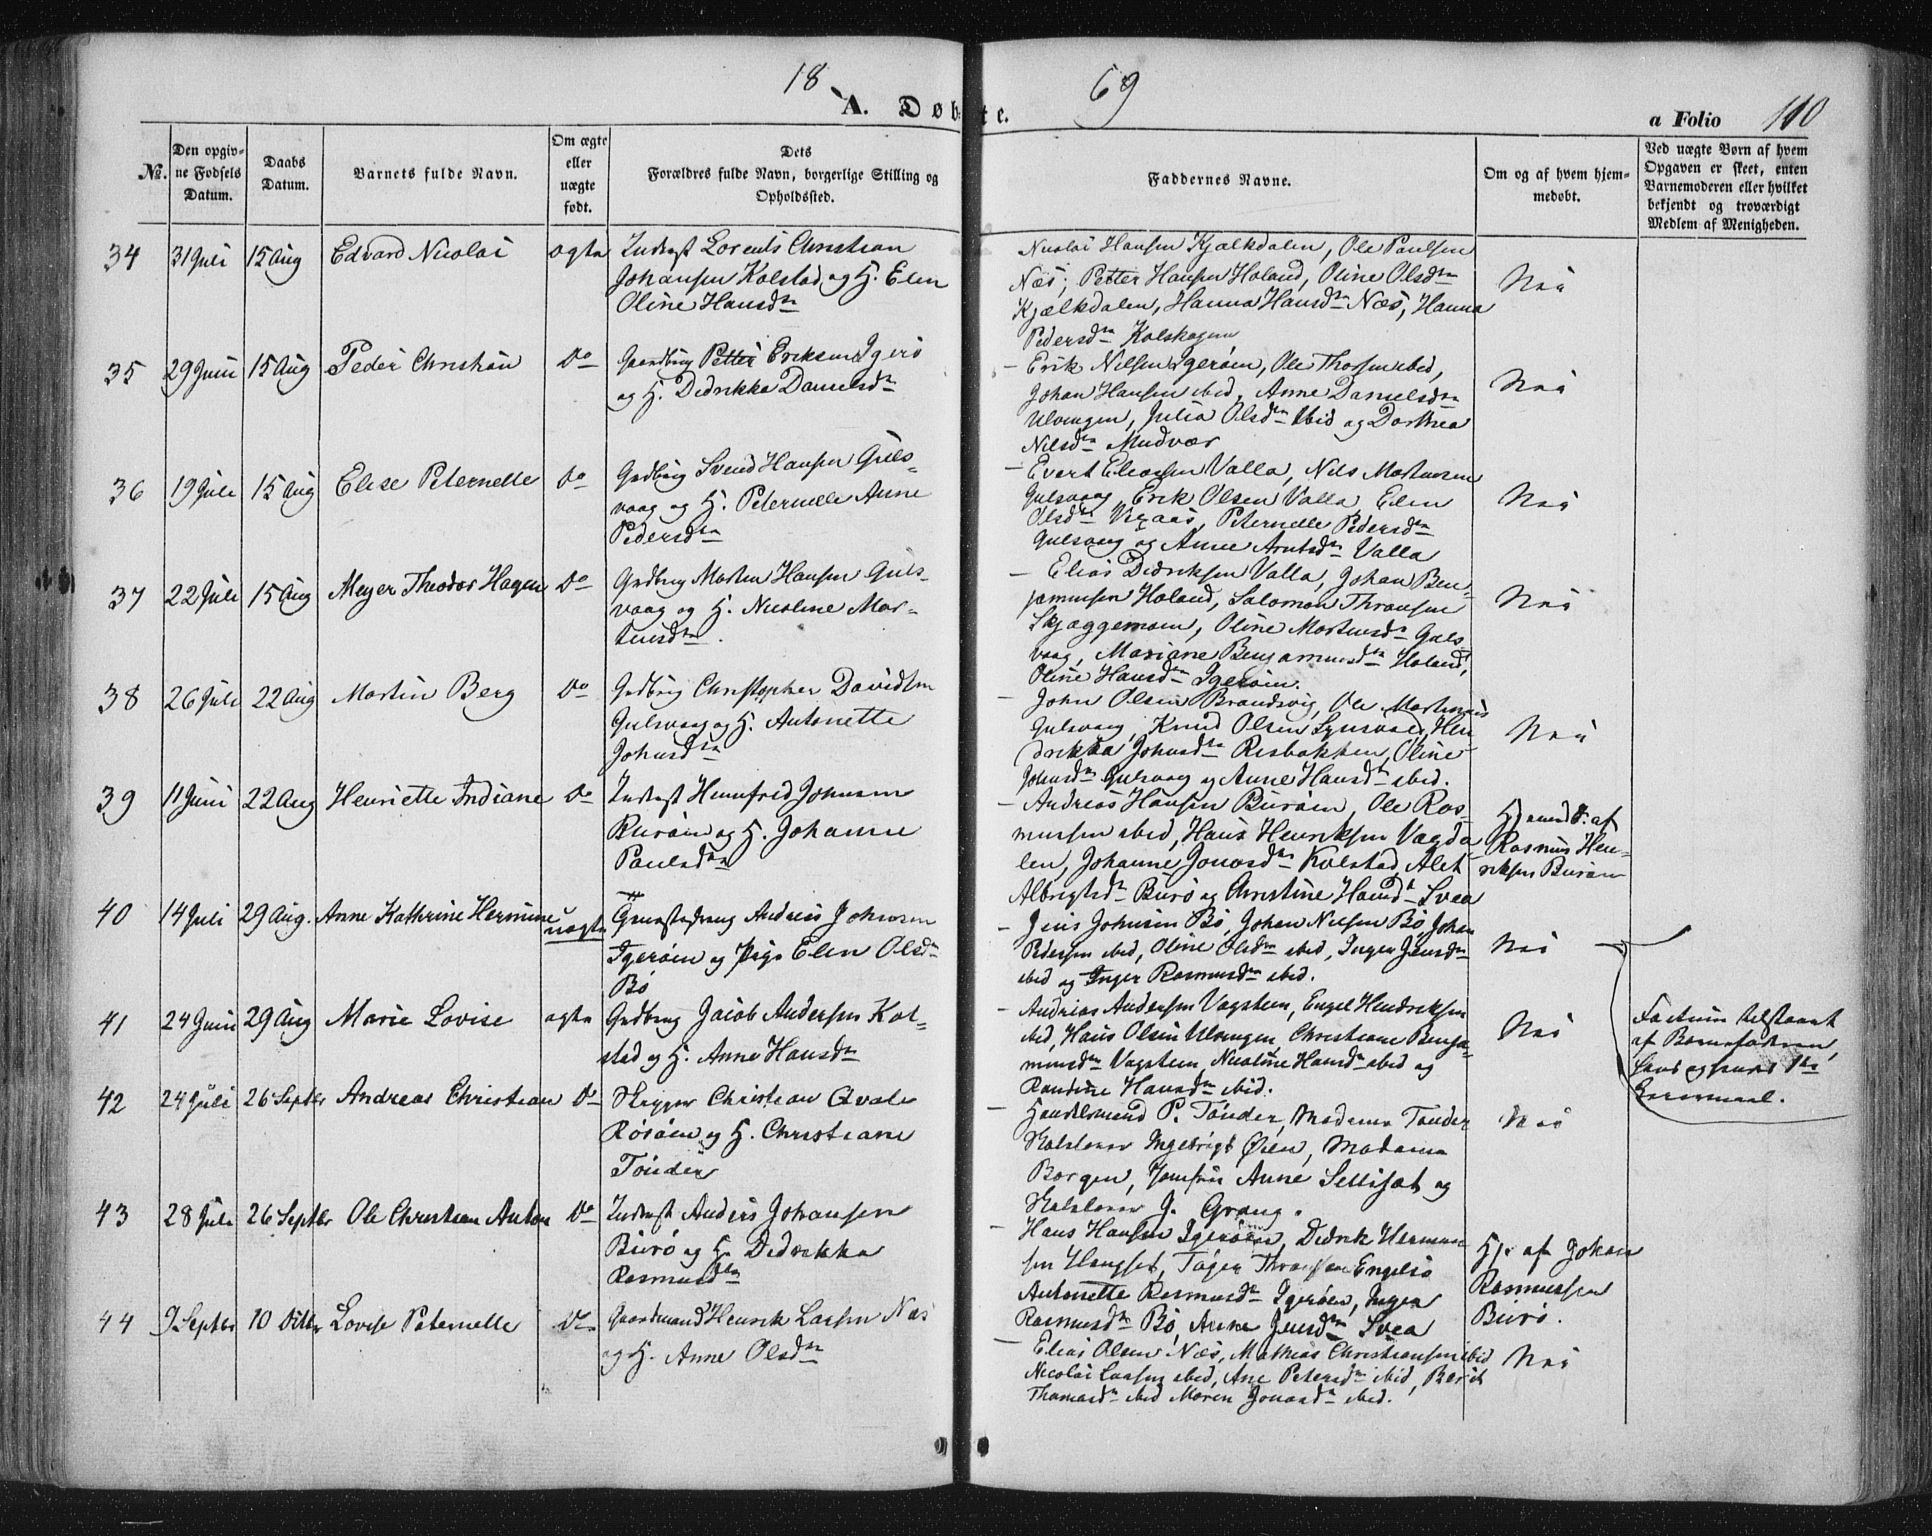 18 69
A. Døbte.
a Folio 110
No.
Den opgivne Fødsels Datum.
Daabs Datum.
Barnets fulde Navn.
Om ægte eller uægte født.
Dets
Forældres fulde Navn, borgerlige Stilling og
Opholdssted.
Faddernes Navne.
Om og af hvem hjemmedøbt.
Ved uægte Børn af hvem
Opgaven er skeet, enten
Barnemoderen eller hvilket
bekjendt og troværdigt
Medlem af Menigheden.
34 31 Juli 15 Aug Edvard Nicolai ægte Inderst Lorents Christian
Johansen Kolstad og H. Elen
Oline Hansdtr
Nicolai Hansen Kjælkdalen, Ole Paulsen
Næs, Petter Hansen Holand, Oline Olsdtr
Kjælkdalen, Hanna Hansdtr Næs, Hanna
Pedersdtr Kolskogen
Nei
35 29 Juni 15 Aug Peder Christian Do Gaardbrug Petter Eriksen Igerø
og H. Didrikka Danielsdtr
Erik Nilsen Igerøen, Ole Thossen ibid,
Johan Hansen ibid, Anne Danielsdtr
Ulvingen, Julia Olsdtr ibid og Dorthea
Nilsdtr Mudvær
Nei
36 19 Juli 15 Aug Elise Peternelle Do Grdbrug Svend Hansen Guls-
vaag og H. Peternelle Anne
Pedersdtr
Evert Eliassen Valla, Nils Mortensen
Gulsvaag, Erik Olsen Valla, Elen
Olsdtr, Peternelle Pedersdtr
Gulsvaag og Anne Arntsdtr Valla
Nei
37 22 Juli 15 Aug Meyer Theodor Hagen Do Grdbrug Morten Hansen Guls-
vaag og H. Nicoline Mor-
tensdtr.
Elias Didriksen Valla, Johan Ben-
jaminsen Holand, Salomon Thronsen
Skjæggemoen, Oline Mortensdtr Guls
vaag, Mariane Benjaminsdtr Holand,
Oline Hansdtr Igerøen.
Nei
38 26 Juli 22 Aug Martin Berg Do Grdbrug Christopher Davidsen
Gulsvaag og H. Antonette
Johnsdtr
John Olsen Brandsvig, Ole Mortensen
Gulsvaag, Knud Olsen, Hen
drikka Johnsdtr Risbakken, Oline
Johnsdtr Gulsvaag og Anne Hansdtr ibid.
Nei
39 11 Juni 22 Aug Henriette Indiane Do Inderst Hemfred Johnsen
Burøen og H. Johanne
Paulsdtr
Andreas Hansen Burøen, Ole Ras-
mussen ibid, Hans Henriksen Vægda
len, Johanne Jonasdtr Kolstad, Alet
Albrigtsdtr Burø og Christine Hansdtr Svea
Hjemmed. af
Rasmus Hen-
riksen Burøen
40 14 Juli 29 Aug. Anne Kathrine Hermine uægte Andreas Johnsen
Igerøen og Pige Elen Olsdtr
Bø
Jens Johnsen Bø, Johan Nilsen Bø, Johan
Pedersen ibid, Oline Olsdtr ibid, Inger Jensdtr
ibid og Inger Rasmusdtr ibid.
Nei
Factum tilstaaet
af Barnefaderen,
41 24 Juni 29 Aug Marie Lovise ægte Grdbrug Jacob Andersen Kol-
stad og H. Anne Hansdtr
Andreas Andersen Vagsteen, Engel Hendriksen
ibid, Hans Olsen Ulvingen, Christiane Benja-
minsdtr Vagsteen, Nicoline Hansdtr ibid og
Randine Hansdtr ibid.
Nei
42 24 Juli 26 Septbr Andreas Christian Do Skipper Christian Qvale
Rosøen og H. Christiane
Tønder
Handelsmand P. Tønder, Madame Tønder
Ingebrigt Øien, Madame
Borgen, Jomfru Anne Sellisæt og
J. Grong.
Nei
43 28 Juli 26 Septbr Ole Christian Anton Do Inderst Anders Johansen
Burø og H. Didrikka
Rasmusdtr
Hans Hansen Igerøen, Didrik Herman
sen, Engelsø
Antonette Rasmusdtr Igerøen, Inger
Rasmusdtr Bø, Anne Jensdtr Svea
Hj. af Johan
Rasmussen
Burø.
44 9 Septbr 10 Oktbr Lovise Peternelle Do Gaardmand Henrik Larsen Næs
og H. Anne Olsdtr
Elias Olsen Næs, Mathias Christiansen ibid
Nicolai Larsen ibid, Ane Petersdtr ibid, Berit
Thomasdtr ibid Maren Jonasdtr ibid.
Nei